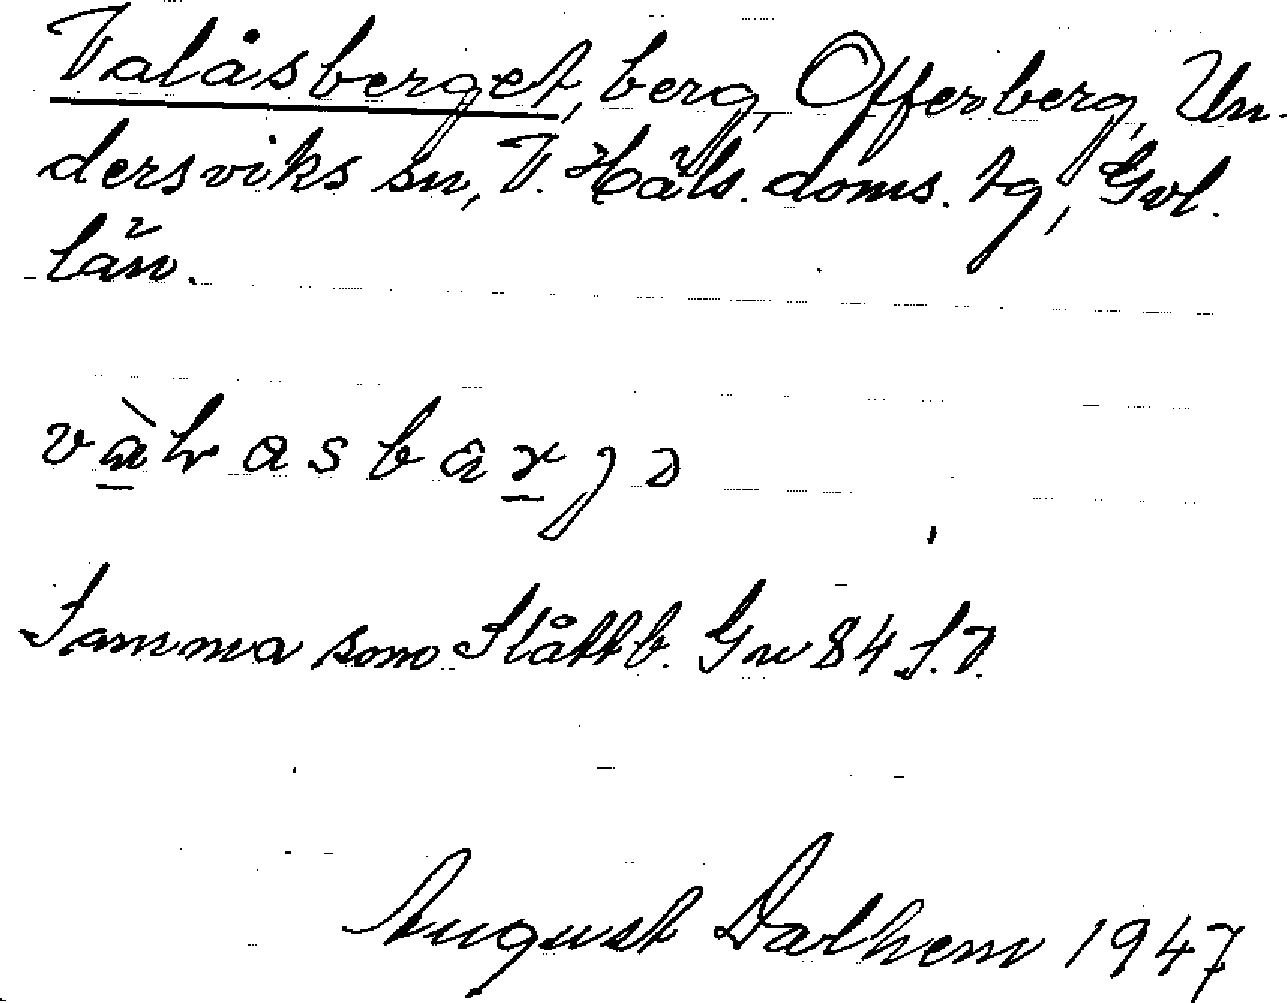 Valåsberget, berg, Offerberg, Un-
dersviks sn, V. Häls. doms. tg, Gvl.
län.
Samma som Slåttb. Gw 84 S.V.
August Dalhem 1947